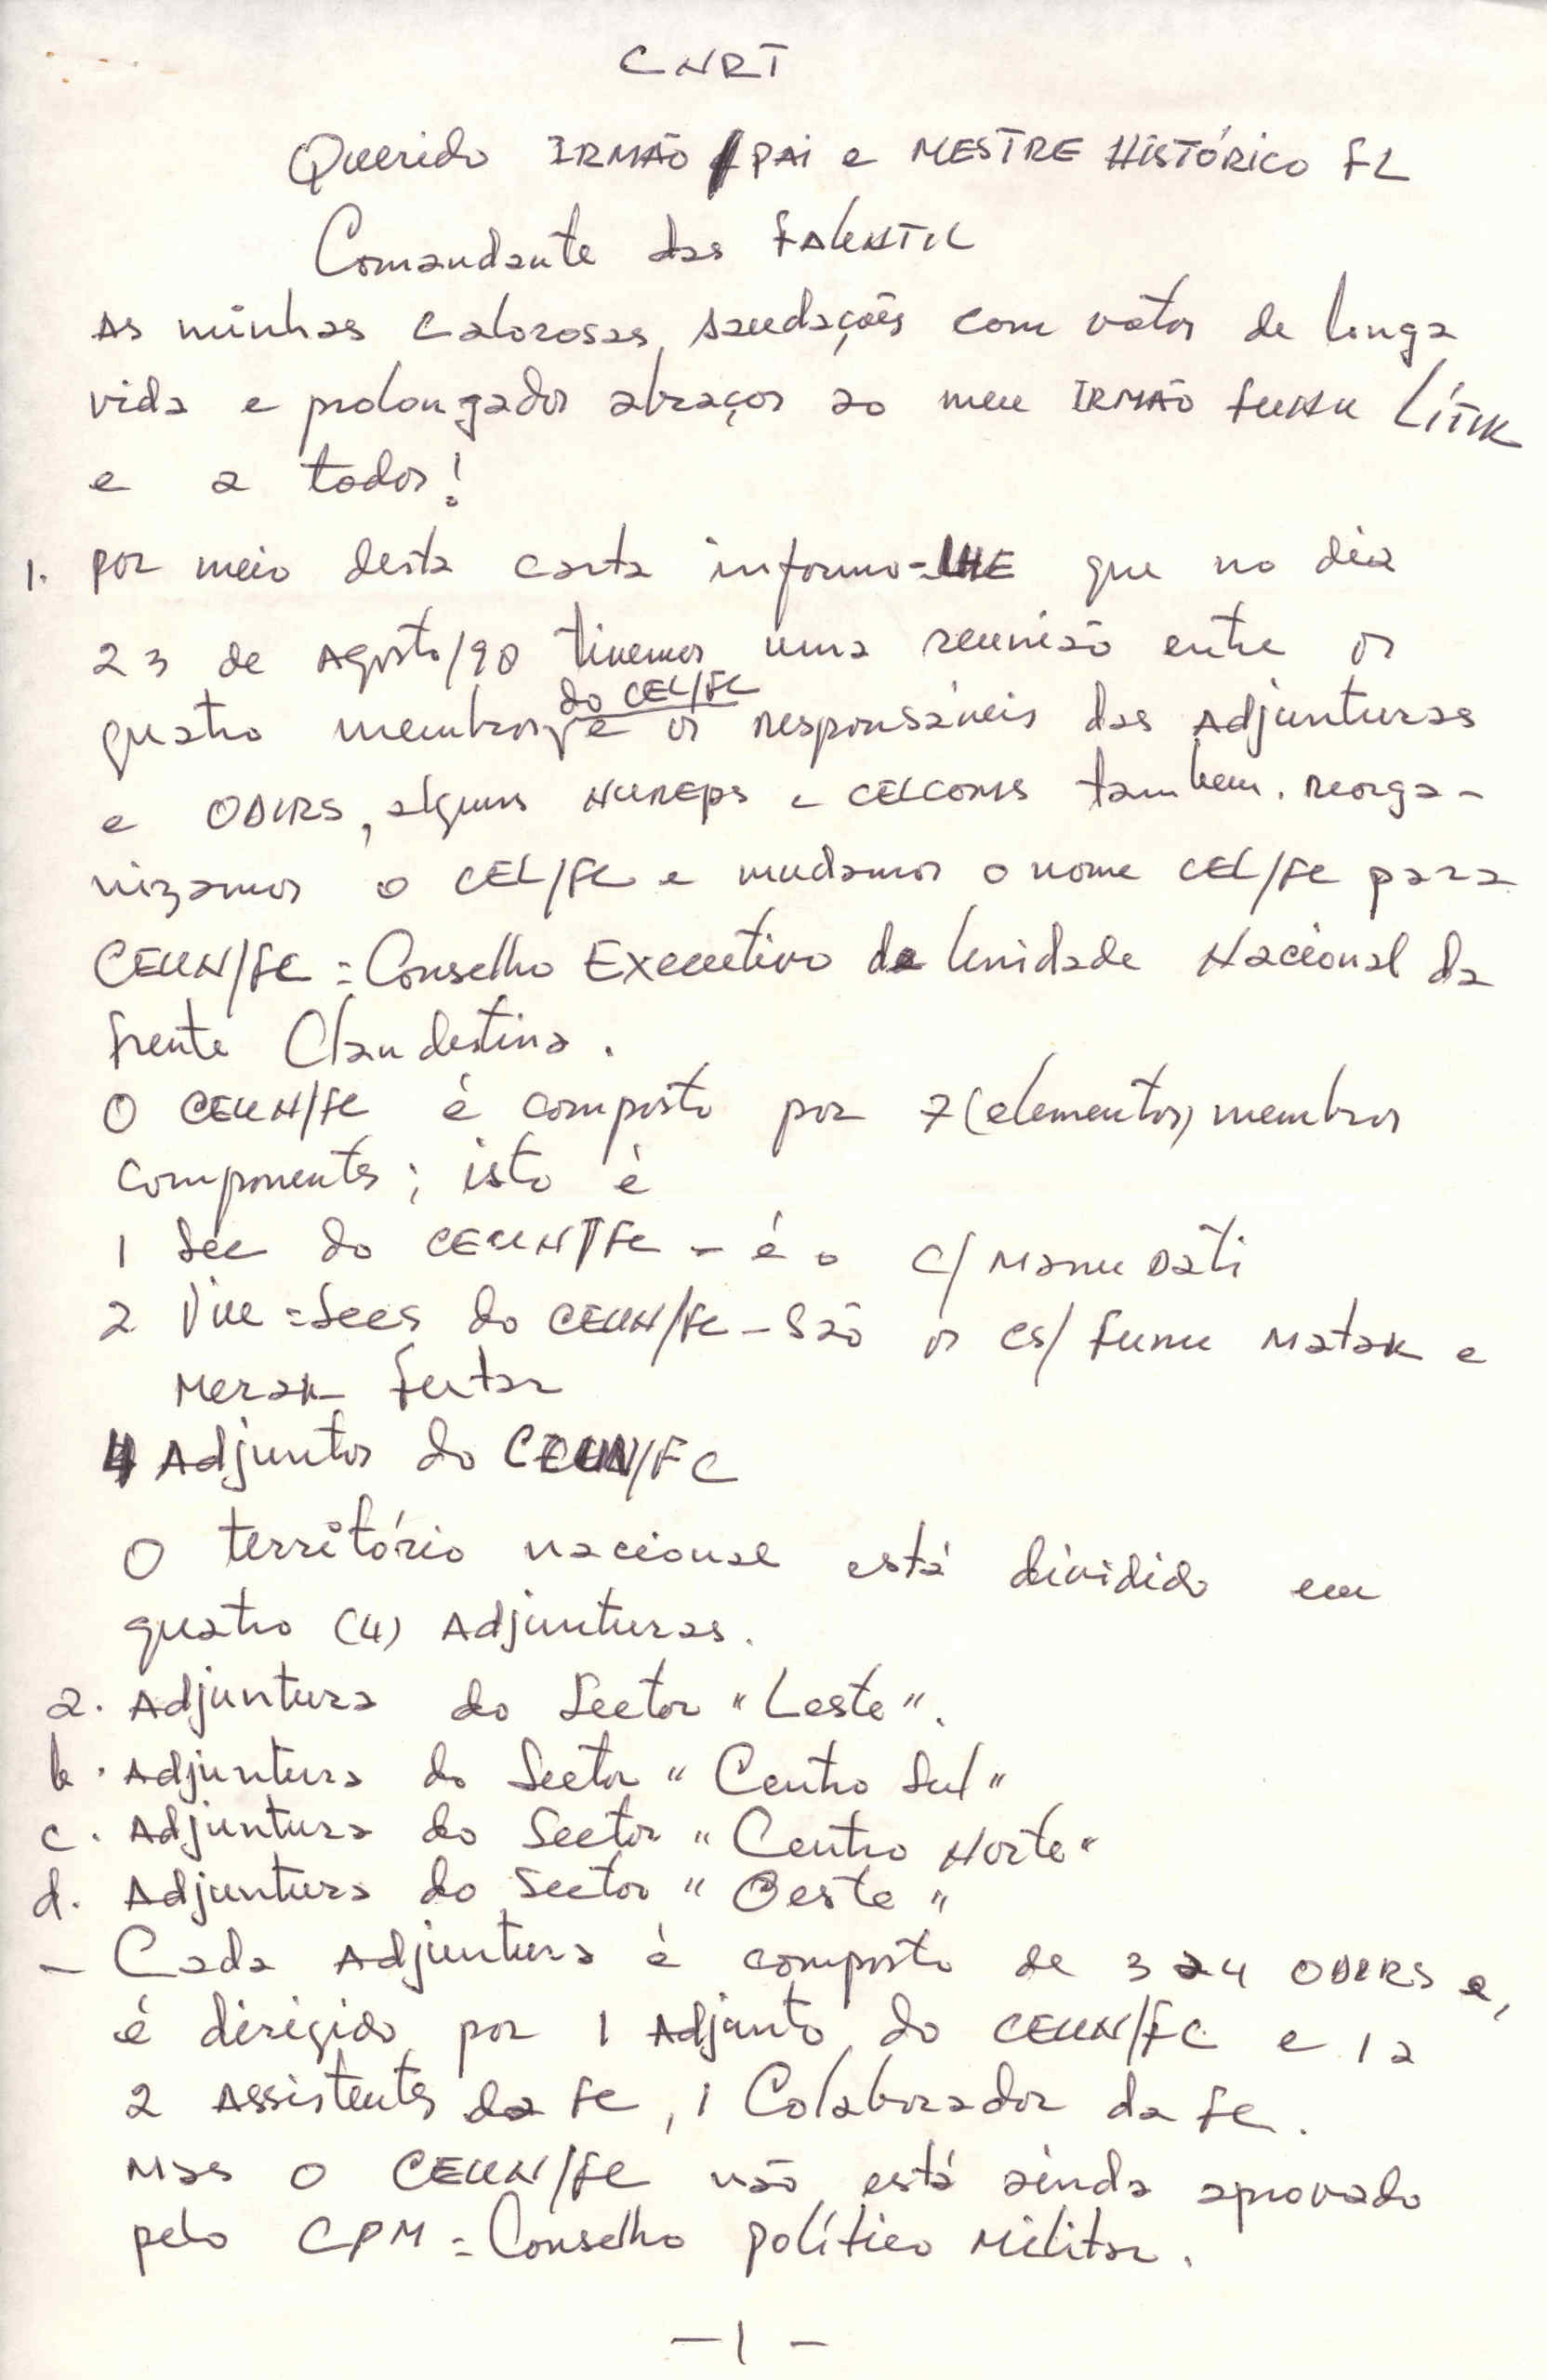 CNRT
Querido IRMÃO / PAI e MESTRE HISTÓRICO FL
Comandante das FALINTIL
As minhas calorosas saudações com votos de longa
vida e prolongados abraços ao meu IRMÃO FUNU LÍTIK
e a todos!
1. Por meio desta carta informo-LHE que no dia
23 de Agosto/98 tivemos uma reunião entre os
quatro membros do CEL/FC e os responsáveis das Adjunturas
e ODIRS, alguns NUREPs e CELCOMs tambem. Reorga-
nizamos o CEL/FC e mudamos o nome CEL/FC para
CEUN/FC = Conselho Executivo de Unidade Nacional da
Frente Clandestina.
O CEUN/FC é composto por 7 (elementos) membros
componentes; isto é
1 Sec do CEUN/FC - é o C/ Manu Dati
2 Vice = Secs do CEUN/FC - São os Cs/ Funu Matak e
Merak Futar
4 Adjuntos do CEUN/FC
O território nacional está dividido em
quatro (4) Adjunturas.
a. Adjuntura do Sector "Leste".
b. Adjuntura do Sector "Centro Sul"
c. Adjuntura do Sector "Centro Norte"
d. Adjuntura do Sector "Oeste"
- Cada Adjuntura é composto de 3 a 4 ODIRS e,
é dirigido por 1 Adjunto do CEUN/FC e 1 a
2 Assistentes da FC, 1 Colaborador da FC.
Mas o CEUN/FC não está ainda aprovado
pelo CPM = Conselho Político Militar.
- 1 -